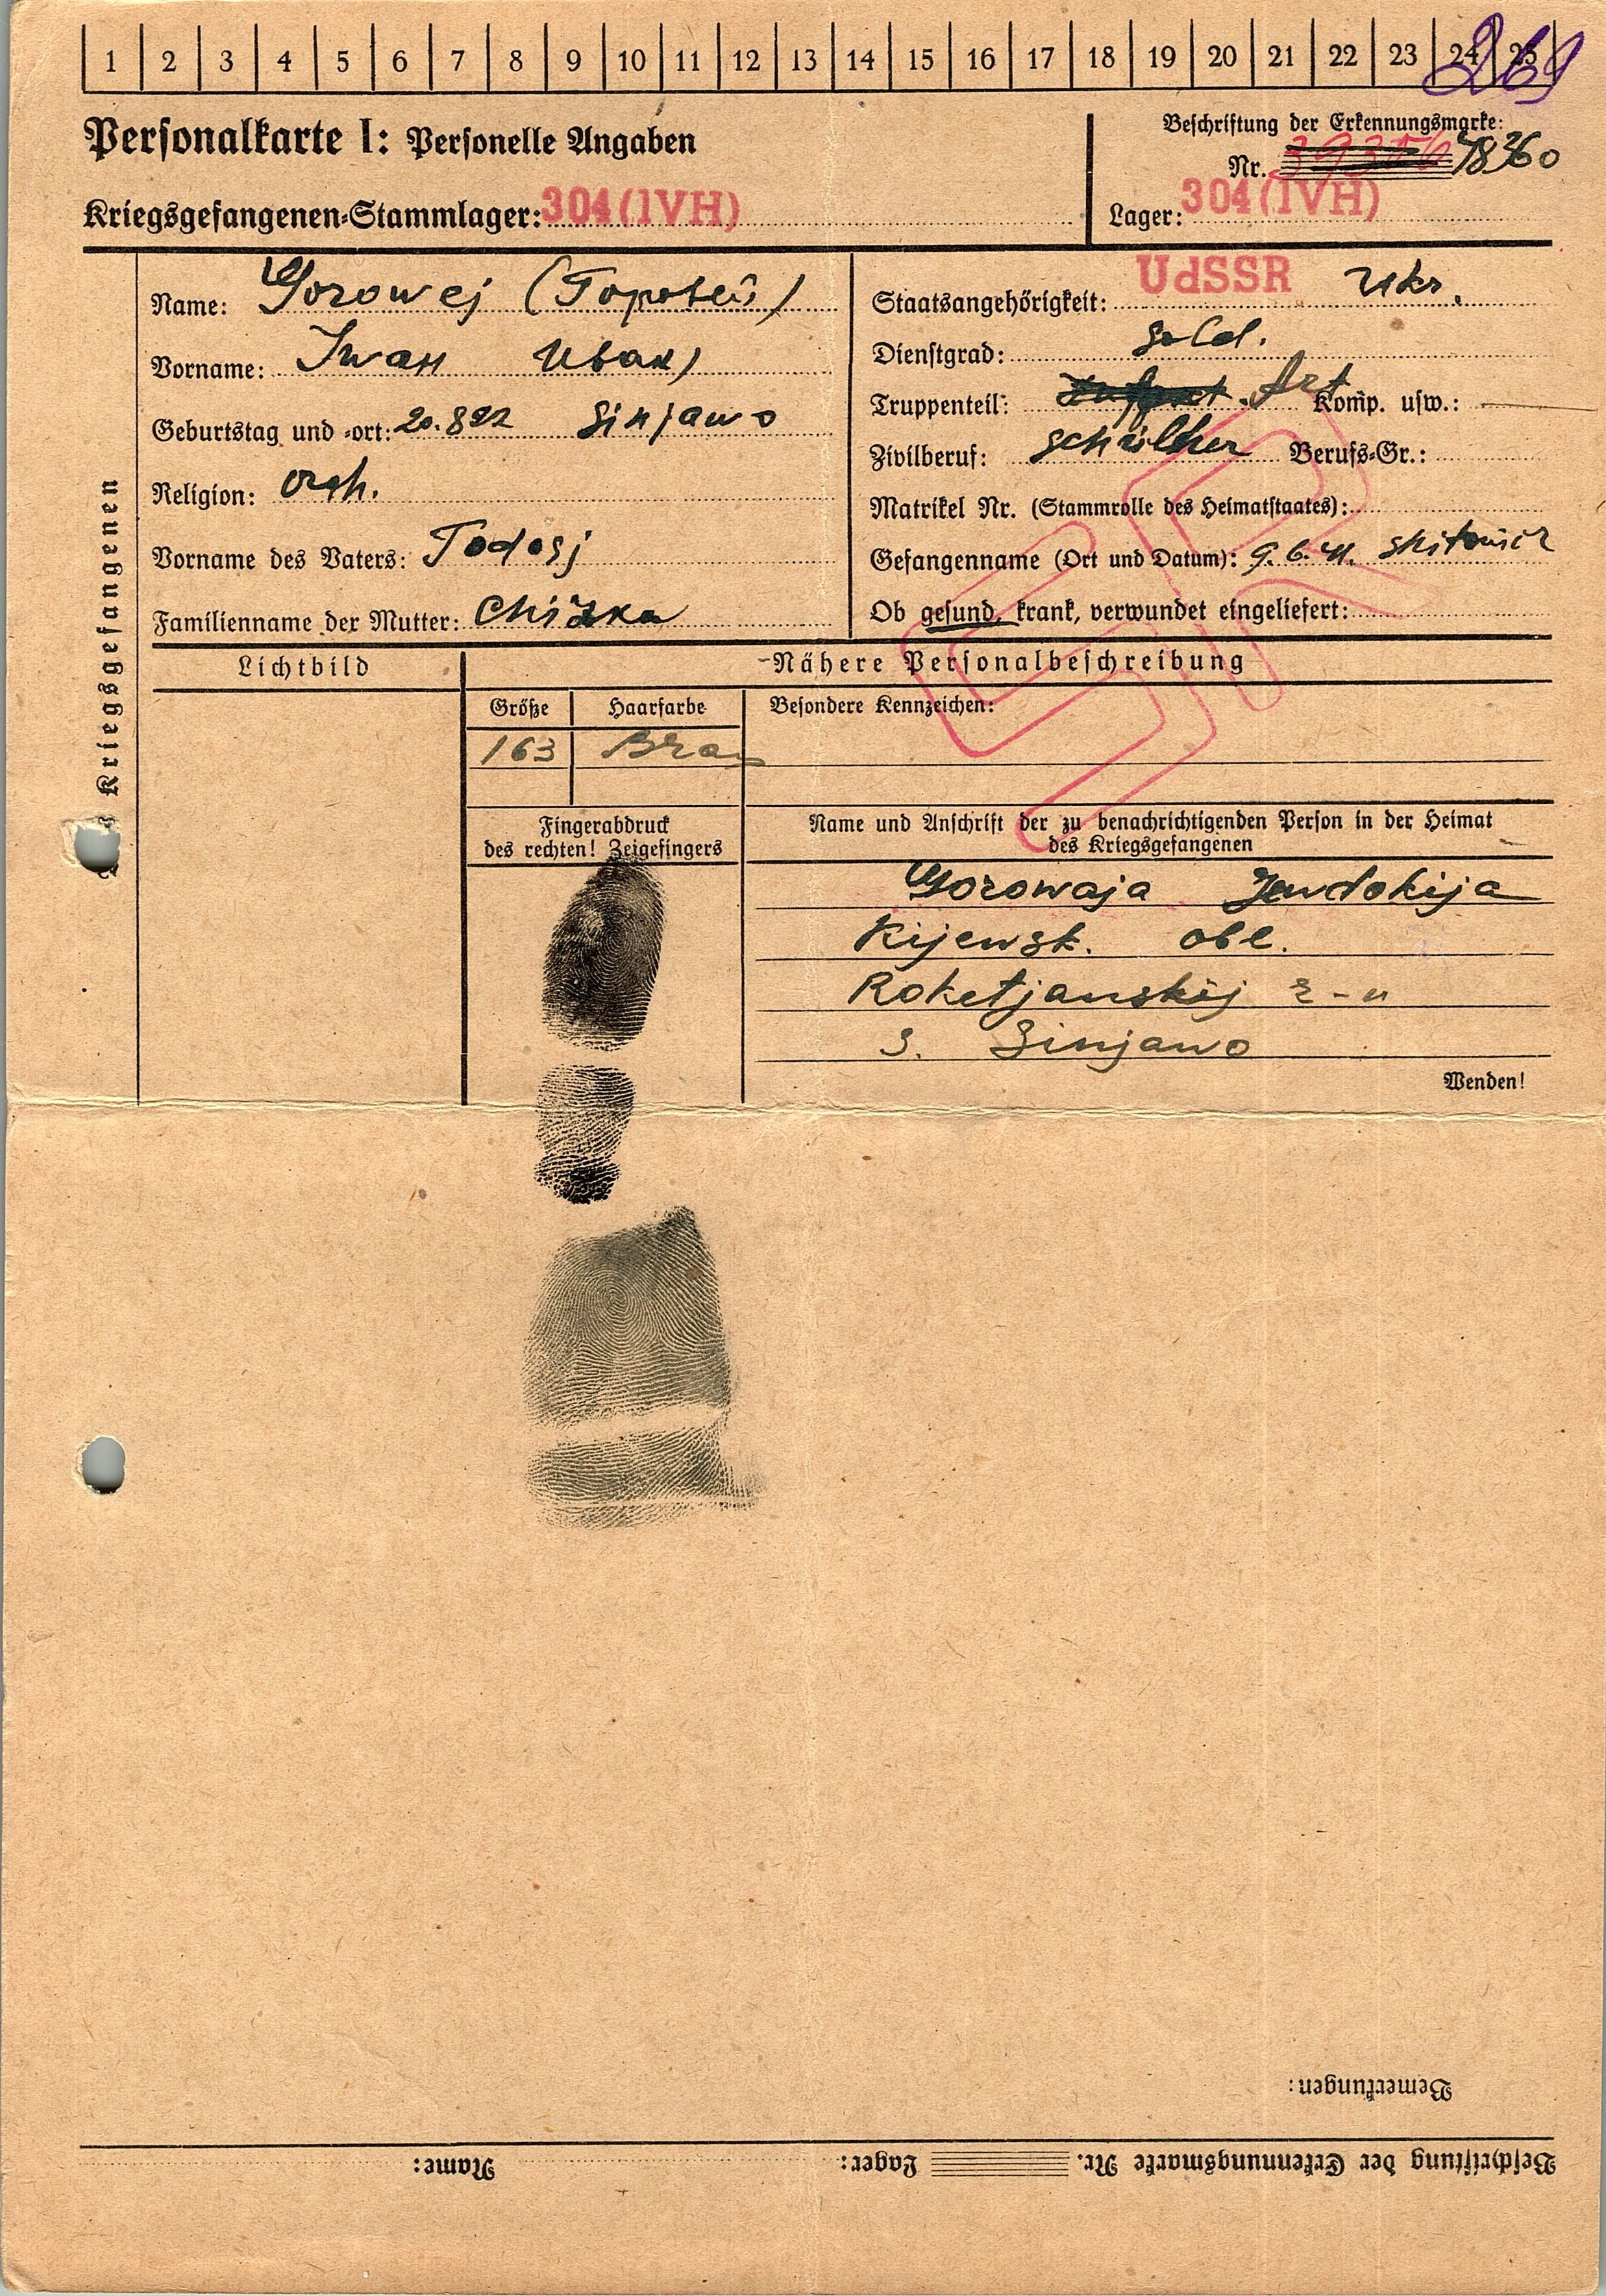 1 2 3 4 5 6 7 8 9 10 11 12 13 14 15 16 17 18 19 20 21 22 23 24 25
269
Personalkarte I: Personelle Angaben
Beschriftung der Erkennungsmarke:
Nr.
Kriegsgefangenen-Stammlager: 304 (IVH)
Lager: 304 (IVH)
Kriegsgefangenen
Name: Gorowej (Горовей)
Vorname: Iwan Иван)
Geburtstag und -ort: 20.8 22 Sinjawo
Religion: orth.
Vorname des Vaters: Todosj
Familienname der Mutter: Chizka
Staatsangehörigkeit: UdSSR Ukr.
Dienstgrad: Sold.
Truppenteil: Art Komp. usw.: —
Zivilberuf: schüller Berufs-Gr.:
Matrikel Nr. (Stammrolle des Heimatstaates):
Gefangenname (Ort und Datum): 9.6.41. Shitomir
Ob gesund, krank, verwundet eingeliefert:
Lichtbild
Nähere Personalbeschreibung
Größe Haarfarbe Besondere Kennzeichen:
163 Braun
Fingerabdruck
des rechten! Zeigefingers
Name und Anschrift der zu benachrichtigenden Person in der Heimat
des Kriegsgefangenen
Gorowaja Jewdokija
Kijewsk. obl.
Roketjanskij r-n
S. Sinjawo
Wenden!
Bemerkungen:
Beschriftung der Erkennungsmarke Nr. Lager: Name: